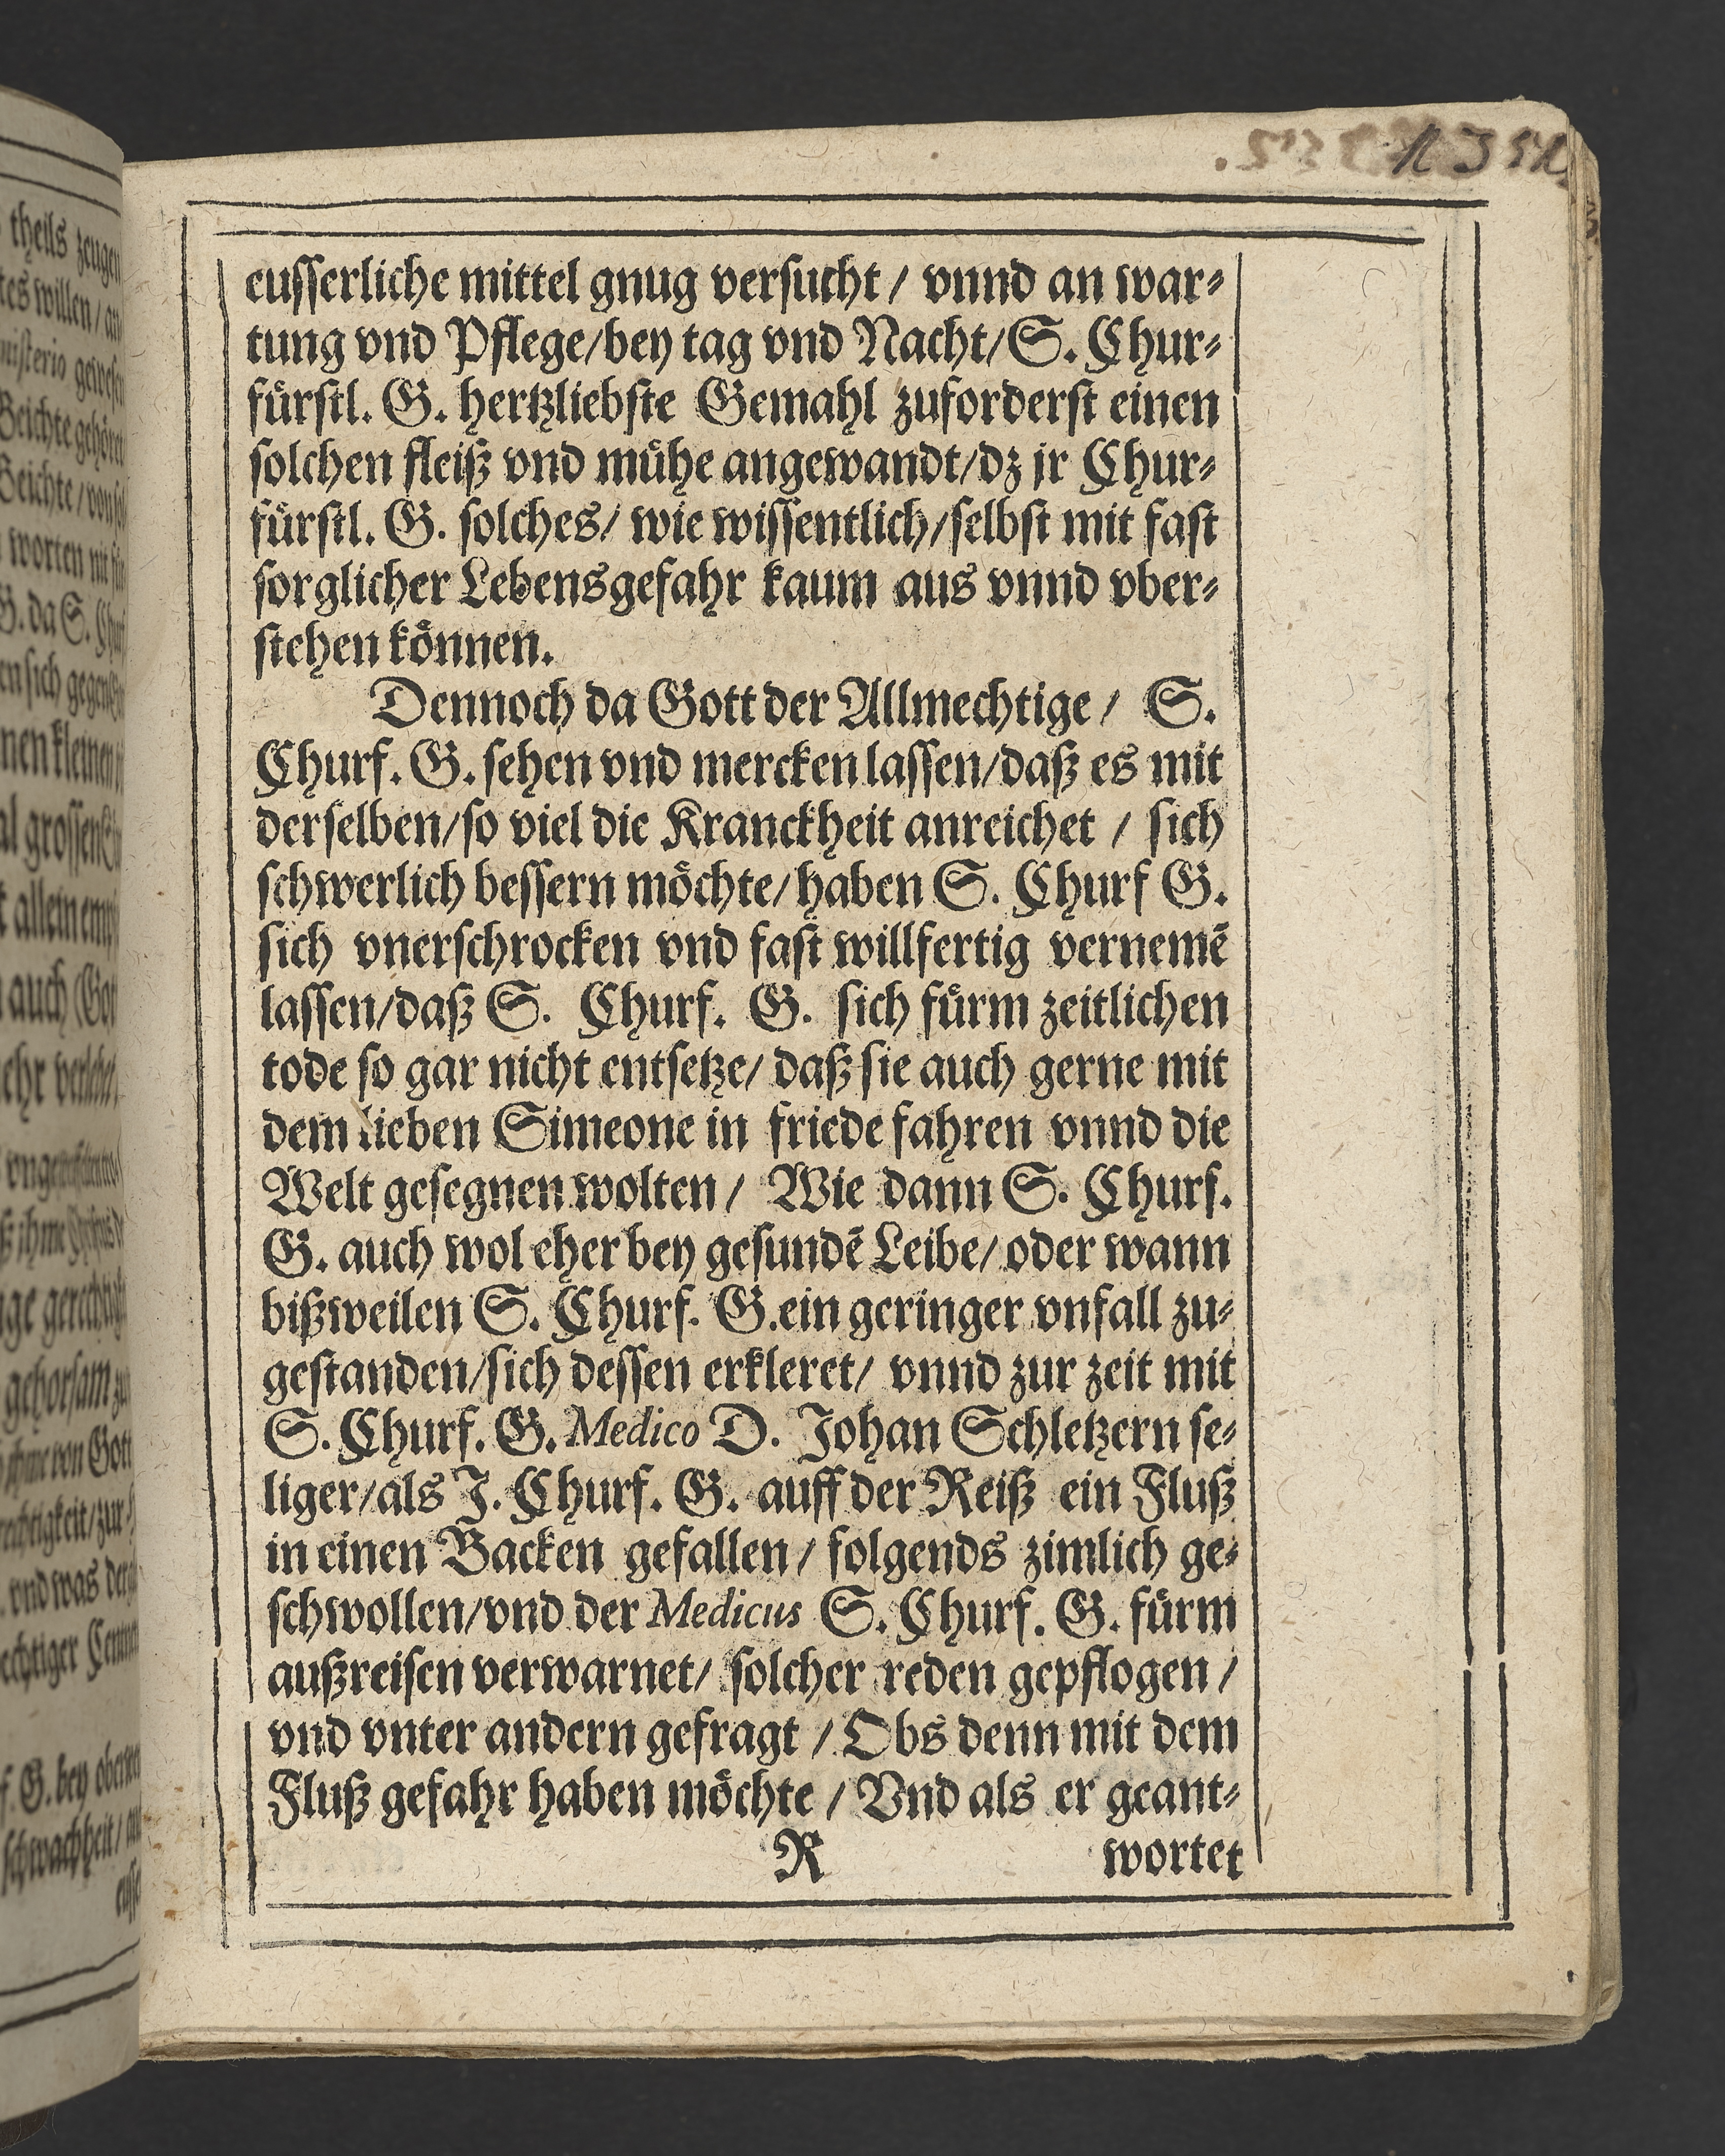 eusserliche mittel gnug versucht / vnnd an war⸗
tung vnd Pflege/bey tag vnd Nacht/S. Chur⸗
fürstl. G. hertzliebste Gemahl zuforderst einen
solchen fleiß vnd mühe angewandt/dz jr Chur⸗
fürstl. G. solches/ wie wissentlich/selbst mit fast
sorglicher Lebensgefahr kaum aus vnnd vber⸗
stehen können.
Dennoch da Gott der Allmechtige / S.
Churf. G. sehen vnd mercken lassen/daß es mit
derselben/so viel die Kranckheit anreichet / sich
schwerlich bessern möchte/ haben S. Churf G.
sich vnerschrocken vnd fast willfertig vernemẽ
lassen/daß S. Churf. G. sich fürm zeitlichen
tode so gar nicht entsetze/ daß sie auch gerne mit
dem lieben Simeone in friede fahren vnnd die
Welt gesegnen wolten / Wie dann S. Churf.
G. auch wol eher bey gesundẽ Leibe/ oder wann
bißweilen S. Churf. G.ein geringer vnfall zu⸗
gestanden/sich dessen erkleret/ vnnd zur zeit mit
S. Churf. G. Medico D. Johan Schletzern se⸗
liger/als J. Churf. G. auff der Reiß ein Fluß
in einen Backen gefallen / folgends zimlich ge⸗
schwollen/vnd der Medicus S. Churf. G. fürm
außreisen verwarnet/ solcher reden gepflogen /
vnd vnter andern gefragt / Obs denn mit dem
Fluß gefahr haben möchte / Vnd als er geant⸗
R wortet